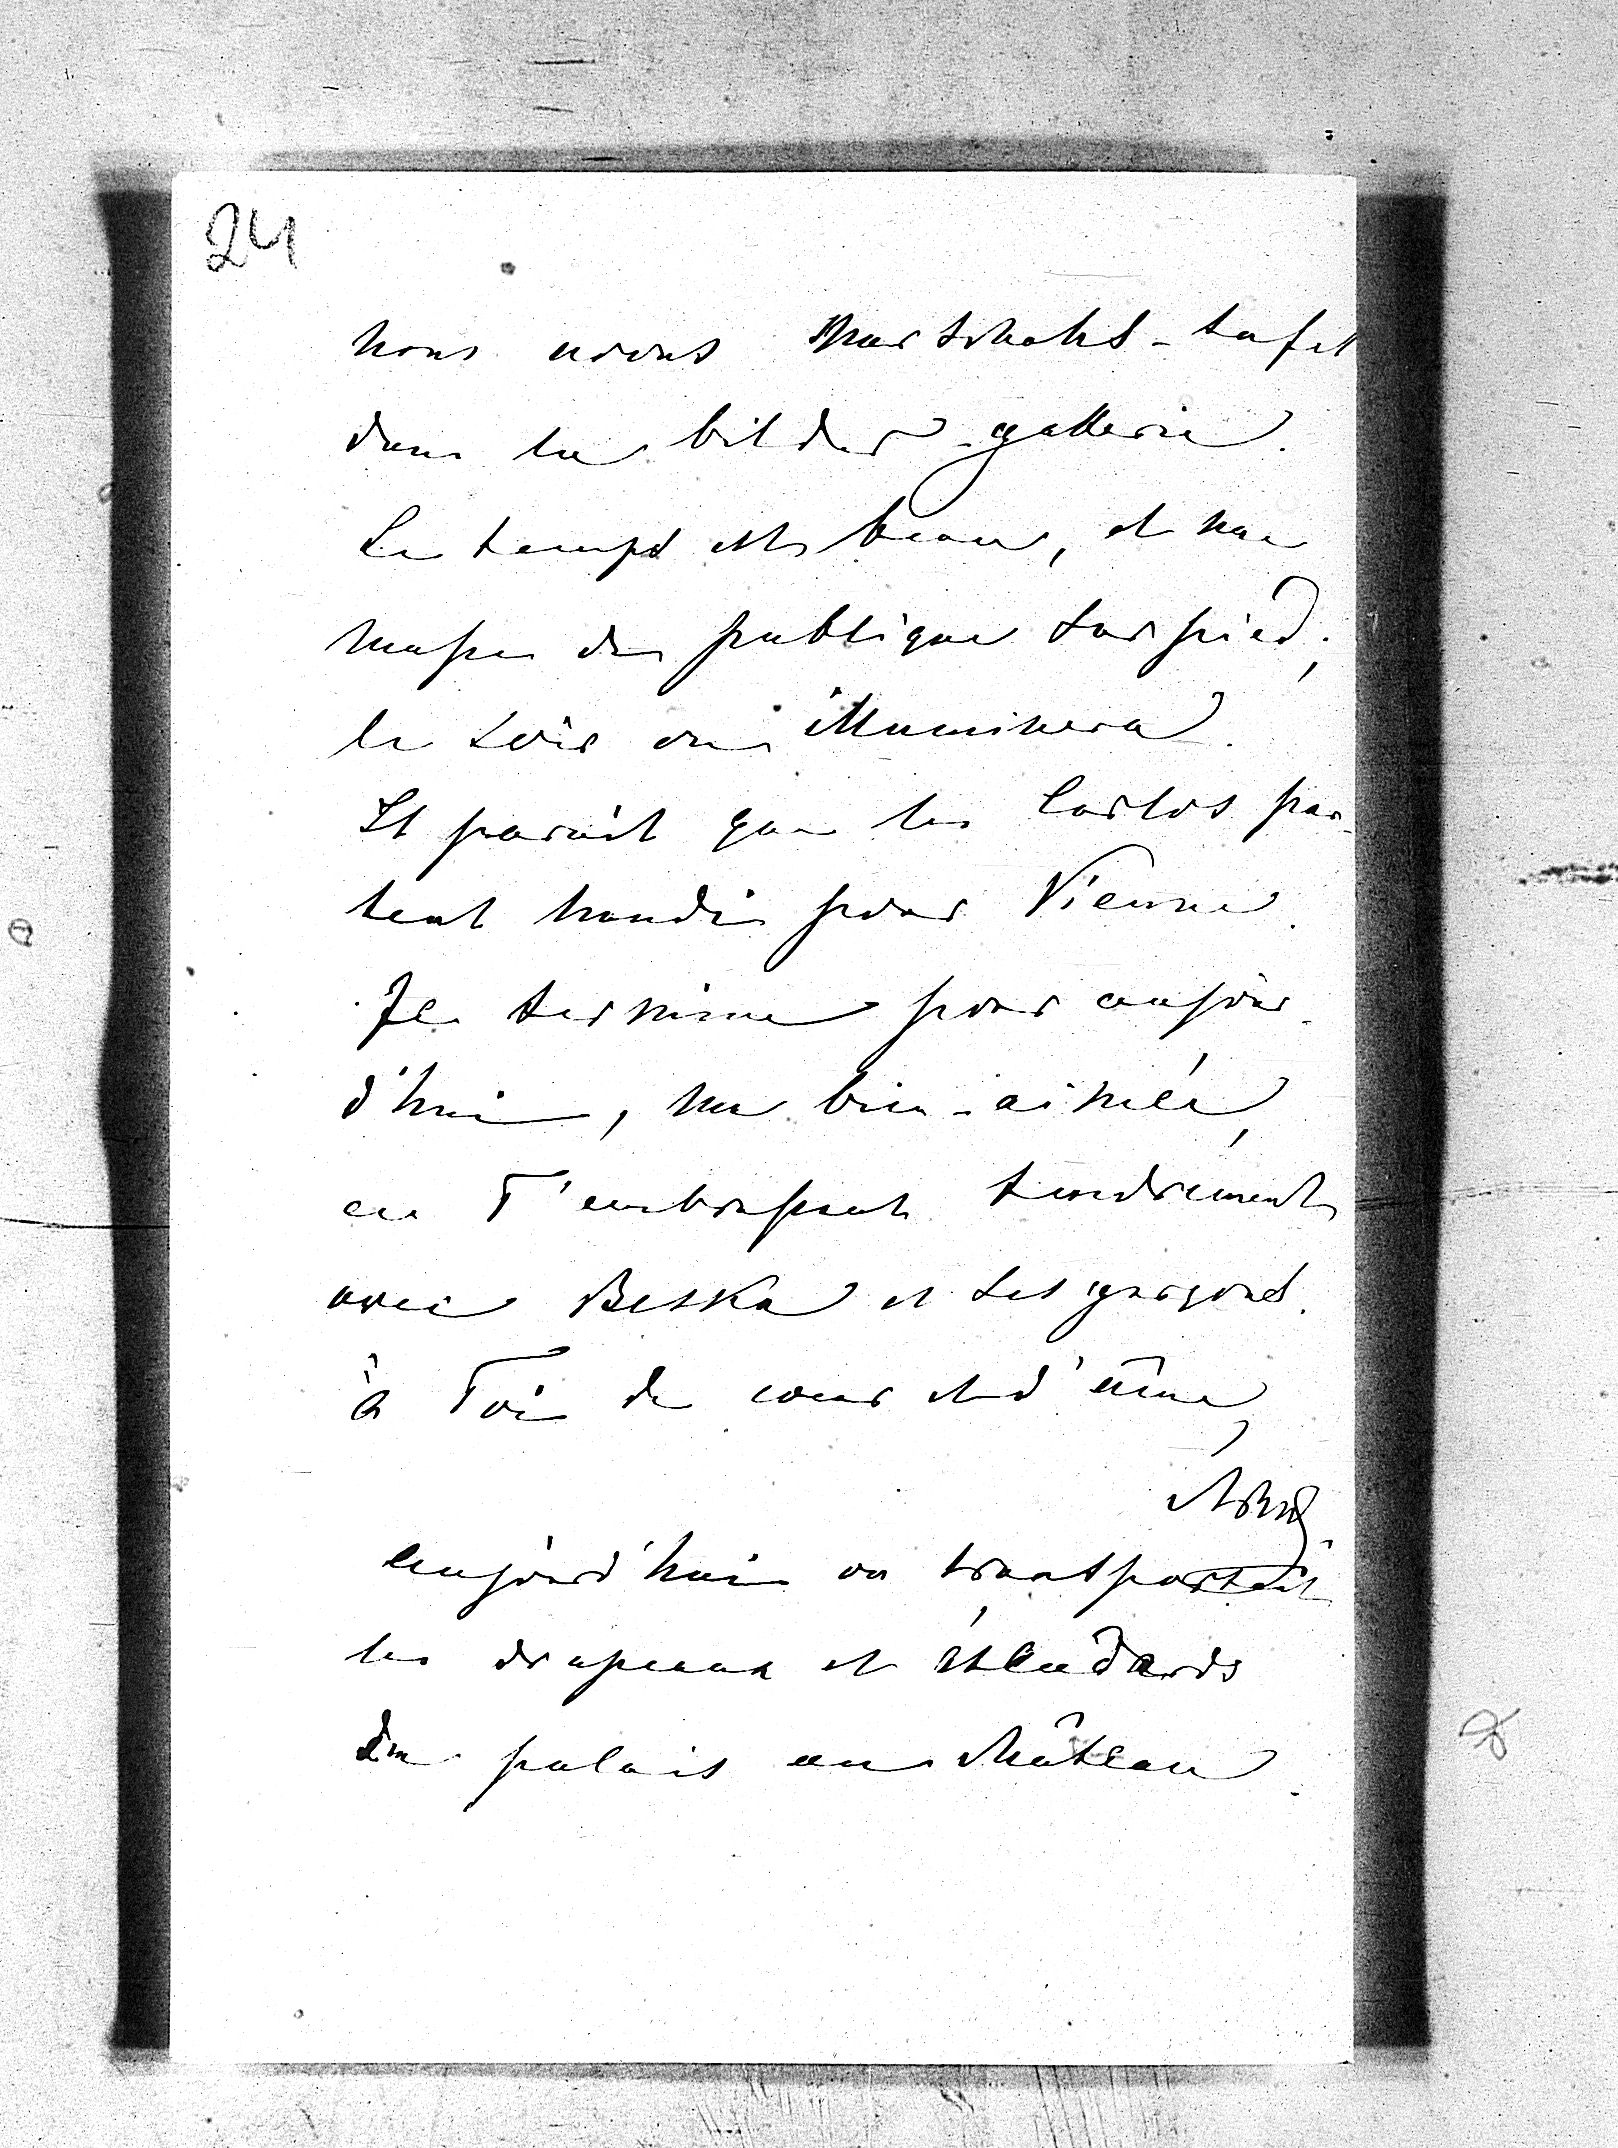 24
nous avons Marschals-tafel
dans la bilder-gallerie.
Le temps est beau, et une
masse de publique sur pied,
le soir on illuminera.
Il parait que les Carlos par-
tent pour Vienne.
Je termine pour aujour-
d'hui, ma bien-aimée,
en T'embrassant tendrement
avec Beska et les garçons.
à Toi de coeur et d'âme,
aujourd'hui on transportait
les drapeaux et étendards
du palais au château.